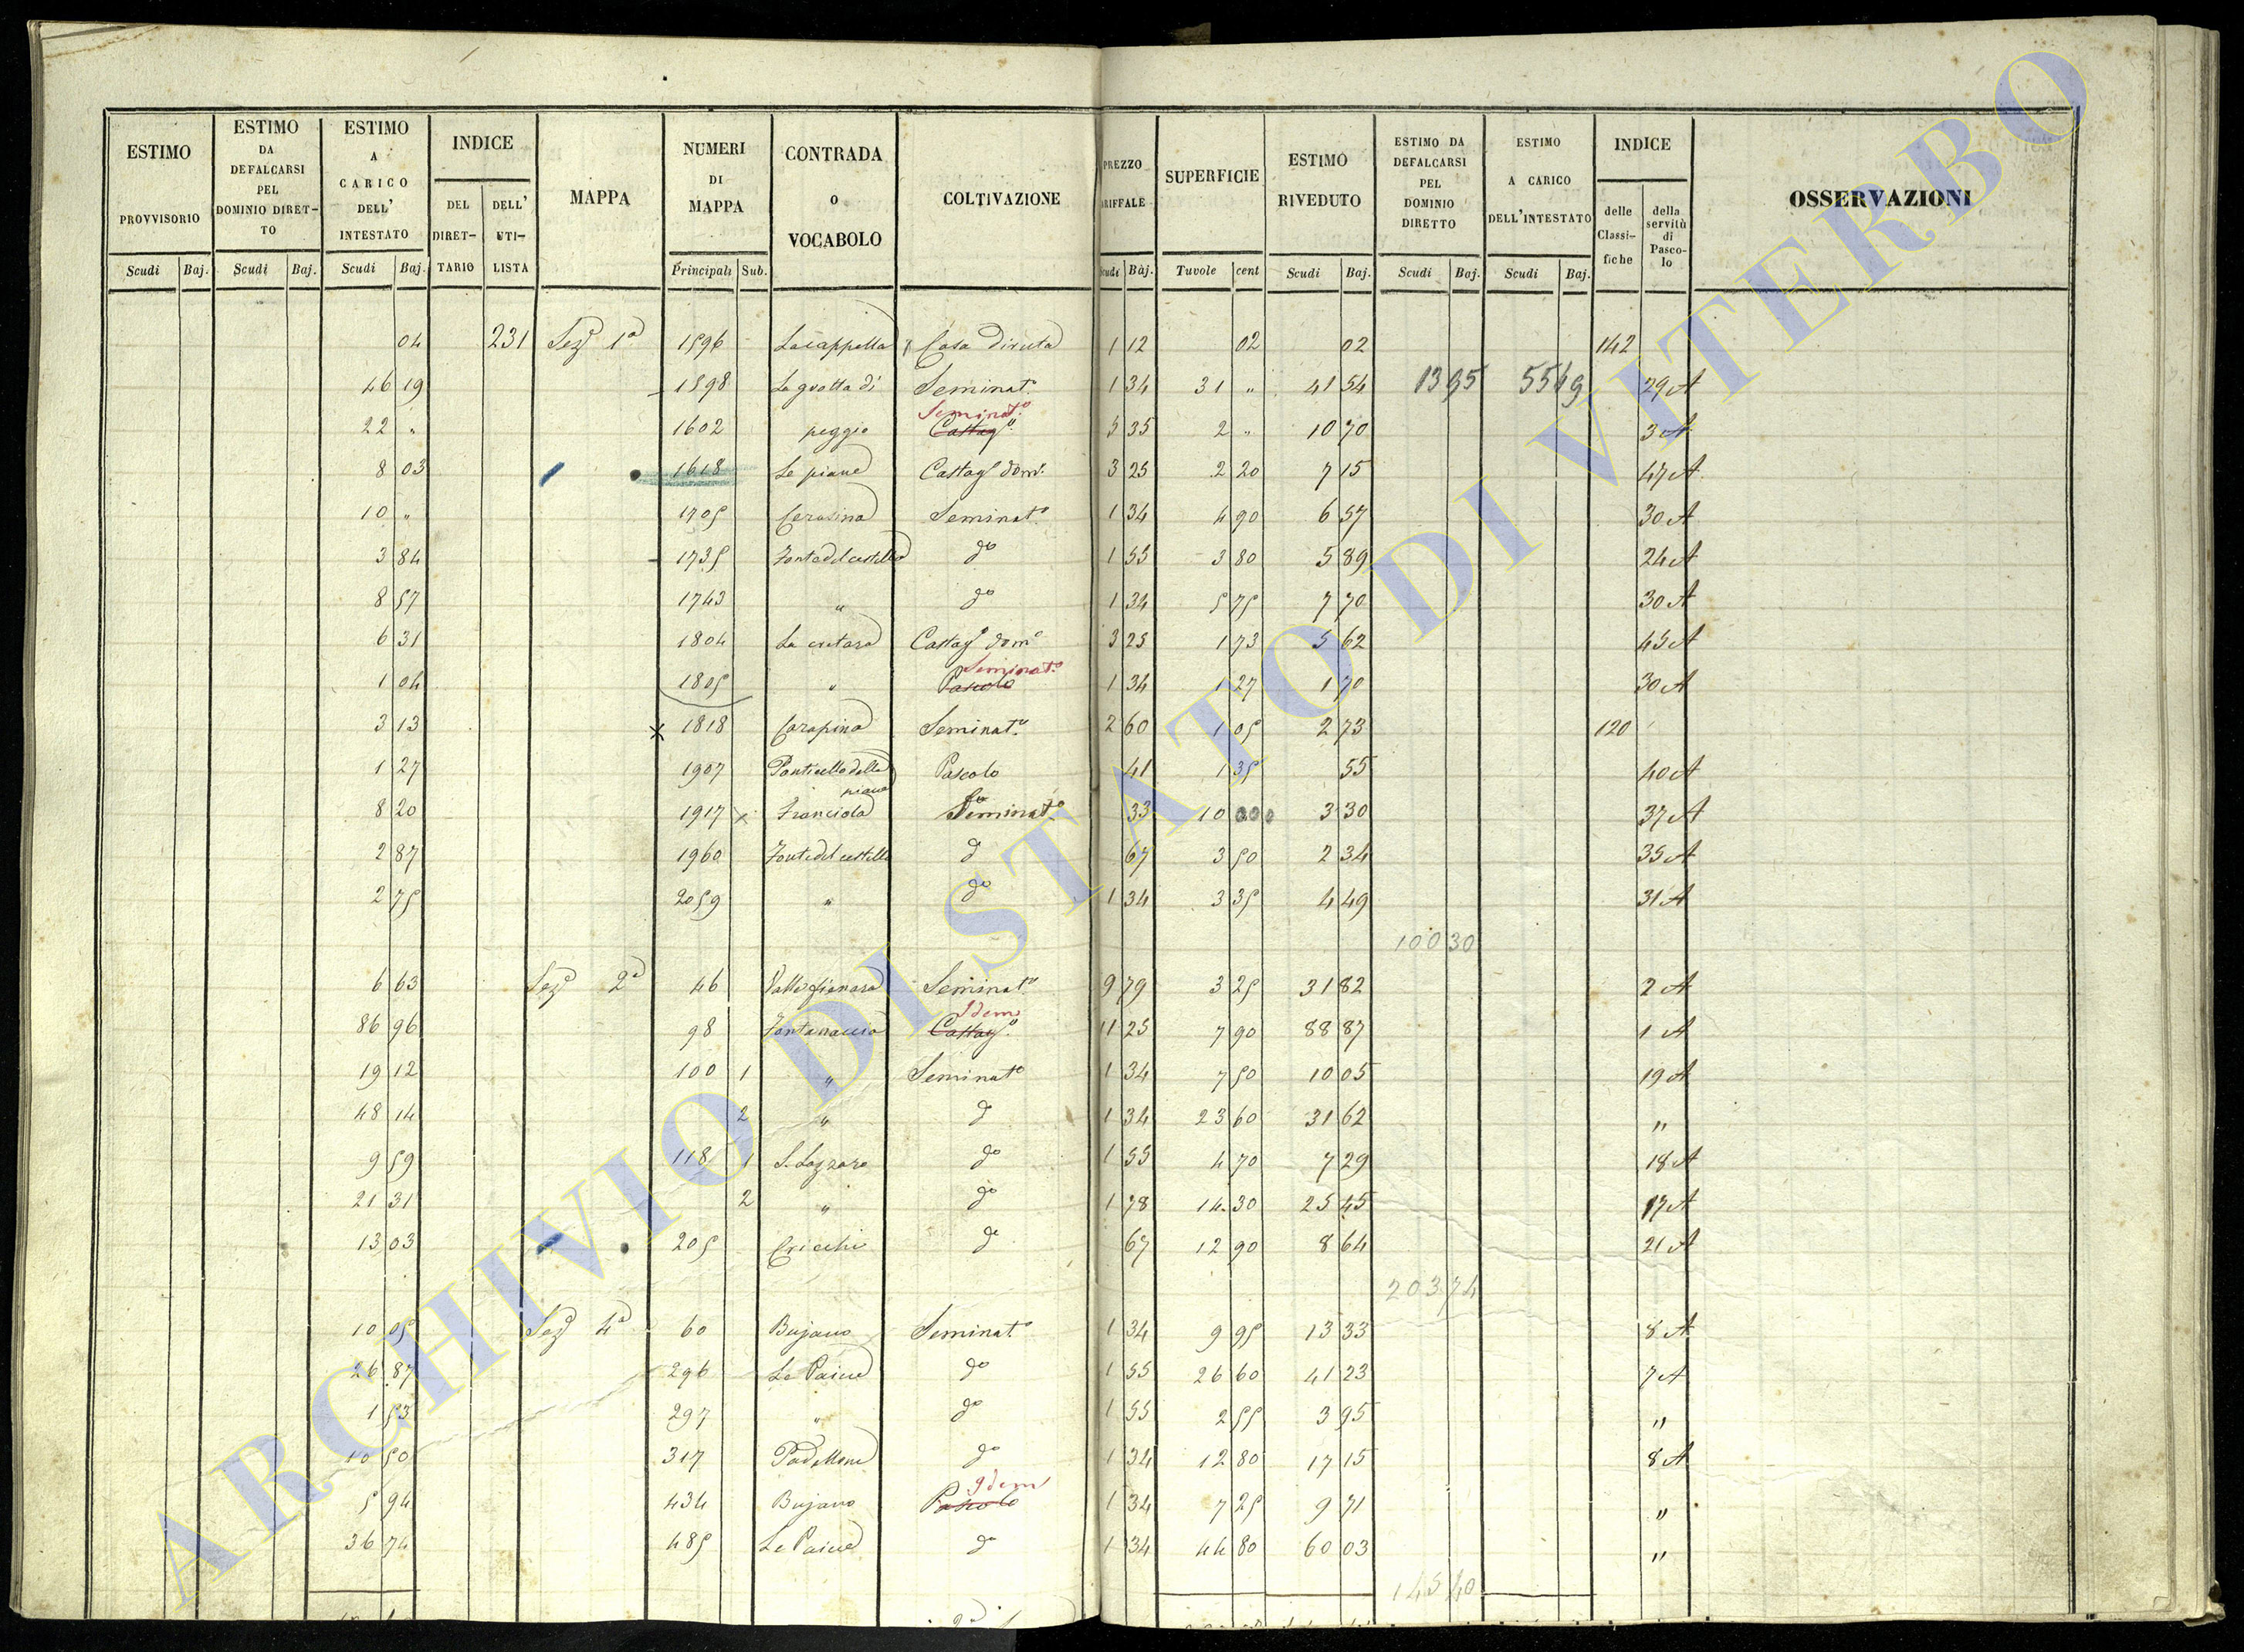 ESTIMO PROVVISORIO Scudi Baj.
ESTIMO DA DEFALCARSI PEL DOMINIO DIRETTO Scudi Baj.
ESTIMO A CARICO DELL' INTESTATO Scudi Baj.
INDICE DEL DIRETTARIO DELL' UTILISTA
MAPPA
NUMERI DI MAPPA Principali Sub.
CONTRADA o VOCABOLO
COLTIVAZIONE
PREZZO ARIFFALE Scudi Baj.
SUPERFICIE Tavole cent
ESTIMO RIVEDUTO Scudi Baj.
ESTIMO DA DEFALCARSI PEL DOMINIO DIRETTO Scudi Baj.
ESTIMO A CARICO DELL'INTESTATO Scudi Baj.
INDICE delle Classifiche della servitù di Pascolo
OSSERVAZIONI
04 231 Sezᵉ 1ª 1596 La cappella Casa diruta 1 12 02 02 142
46 19 1598 La grotta di Seminatº 1 34 31 " 41 54 13 95 55 49 29 A
Seminatº
22 " 1602 peggio Castagº 5 35 2 " 10 70 3 A
8 03 1618 Le piane Castagº domº 3 25 2 20 7 15 47 A
10 " 1705 Cerasina Seminatº 1 34 4 90 6 57 30 A
3 84 1735 Fonte del castello dº 1 55 3 80 5 89 24 A
8 57 1743 " dº 1 34 5 75 7 70 30 A
6 31 1804 La cretara Castagº domº 3 25 1 73 5 62 45 A
Seminatº
1 04 1805 " Pascolo 1 34 1 27 1 70 30 A
3 13 x 1818 Carapina Seminatº 2 60 1 05 2 73 120
1 27 1907 Ponticello della piana Pascolo 41 1 35 55 40 A
8 20 1917 x Franciola Seminatº 33 10 000 3 30 37 A
2 87 1960 Fonte del castello d 67 3 50 2 34 35 A
2 75 2059 " dº 1 34 3 35 4 49 31 A
100 30
6 63 Sezᵉ 2ª 46 Valle fienara Seminatº 9 79 3 25 31 82 2 A
Idem
86 96 98 Fontanaccio Castagº 11 25 7 90 88 87 1 A
19 12 100 1 " Seminatº 1 34 7 50 10 05 19 A
48 14 2 " d 1 34 23 60 31 62 "
9 59 118 1 S. Lazzaro dº 1 55 4 70 7 29 18 A
21 31 2 " dº 1 78 14 30 25 45 17 A
13 03 205 Cricchi dº 67 12 90 8 64 21 A
203 74
10 05 Sezᵉ 4ª 60 Bujano Seminatº 1 34 9 95 13 33 8 A
26 87 296 Le Paine dº 1 55 26 60 41 23 7 A
1 53 297 " dº 1 55 2 55 3 95 "
10 50 317 Padellone dº 1 34 12 80 17 15 8 A
Idem
5 94 434 Bujano Pascolo 1 34 7 25 9 71 "
36 74 485 Le Paine dº 1 34 44 80 60 03 "
145 40
ARCHIVIO DI STATO DI VITERBO